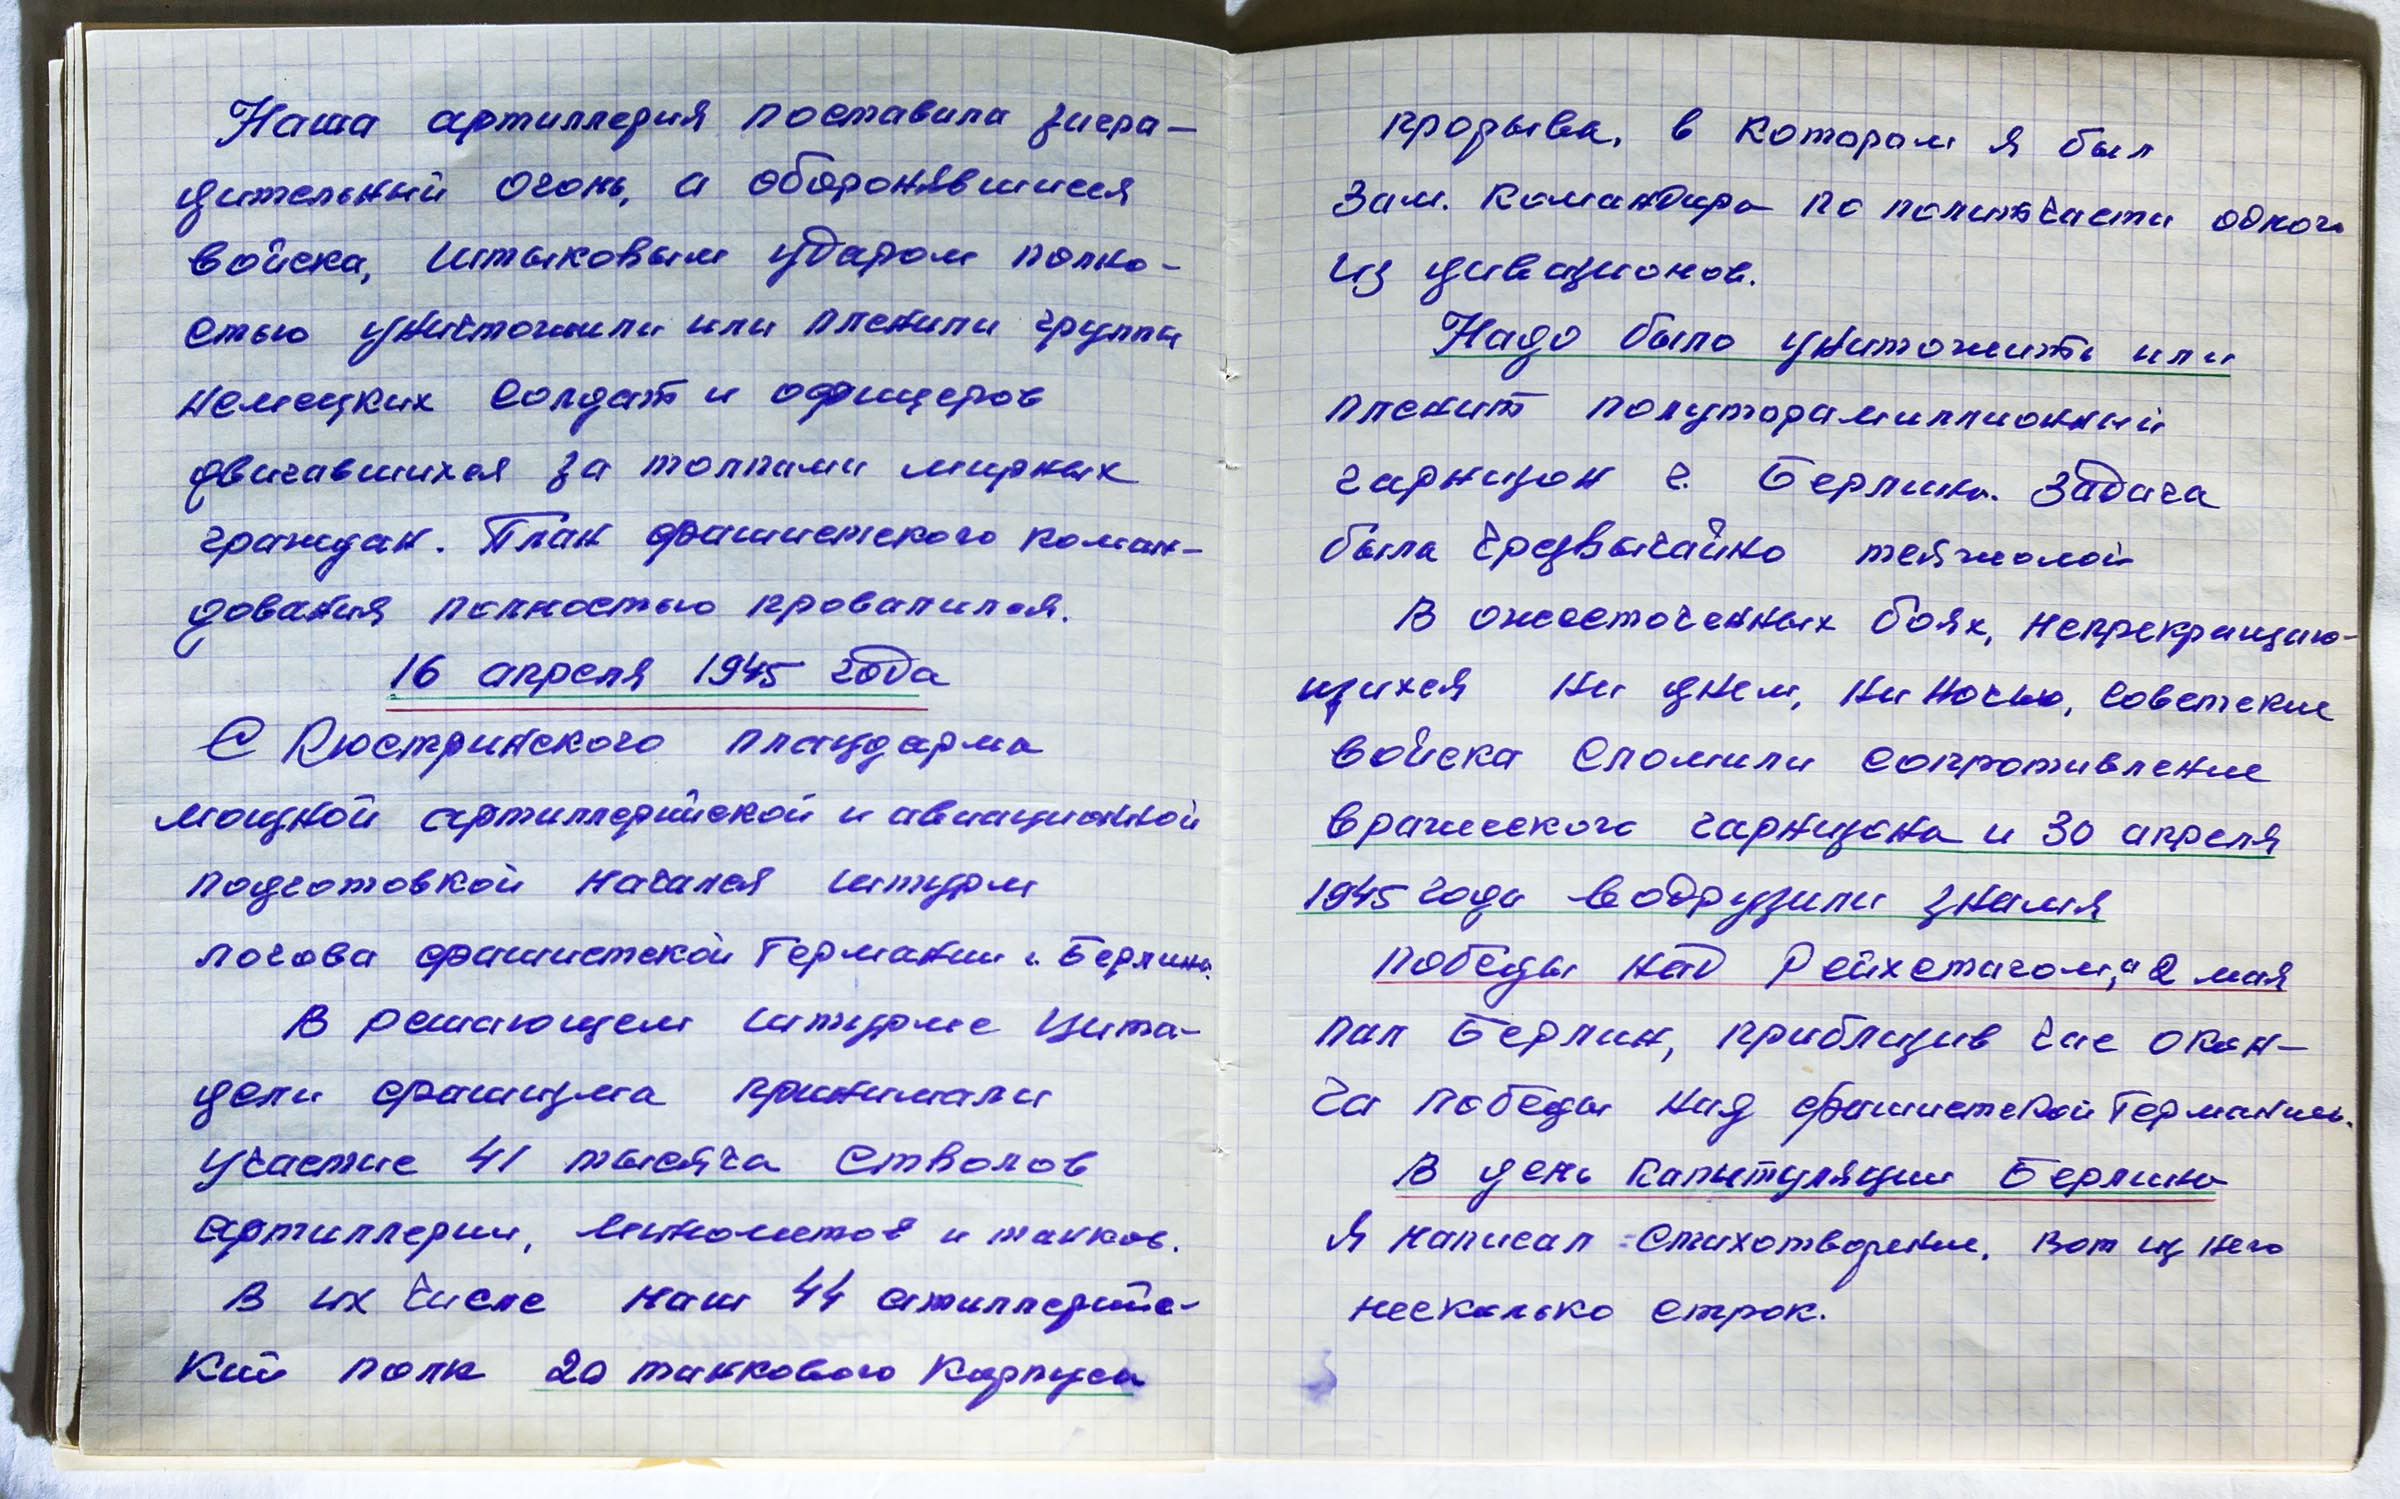 Наша артиллерия поставила загра-
дительный огонь, а оборонявшиеся
войска, штыковым ударом полно-
стью уничтожили или пленили группы
немецких солдат и офицеров
двигавшихся за толпами мирных
граждан. План фашистского коман-
дования полностью провалился.
16 апреля 1945 года
С Кюстринского плацдарма
мощной артиллерийской и авиационной
подготовкой начался штурм
логова фашистской Германии г. Берлина.
В решающем штурме цита-
дели фашизма принимали
участие 41 тысяча стволов
артиллерии, минометов и танков.
В их числе наш 44 атиллерийс-
кий полк 20 танкового Корпуса
прорыва, в котором я был
Зам. командира по политчасти одного
из дивизионов.
Надо было унитожить или
пленит полуторамиллионный
гарнизон г. Берлина. Задача
была чрезвычайно тяжолой
В ожесточенных боях, непрекращаю-
щихся ни днем, ни ночью, Советские
войска сломили сопротивление
вражеского гарнизона и 30 апреля
1945 года водрузили знамя
победы над Рейхстагом, а 2 мая
пал Берлин, приблизив час окон-
ча победы над фашисткой Германией.
В день капитуляции Берлина
Я написал стихотворение, вот из него
несколько строк.